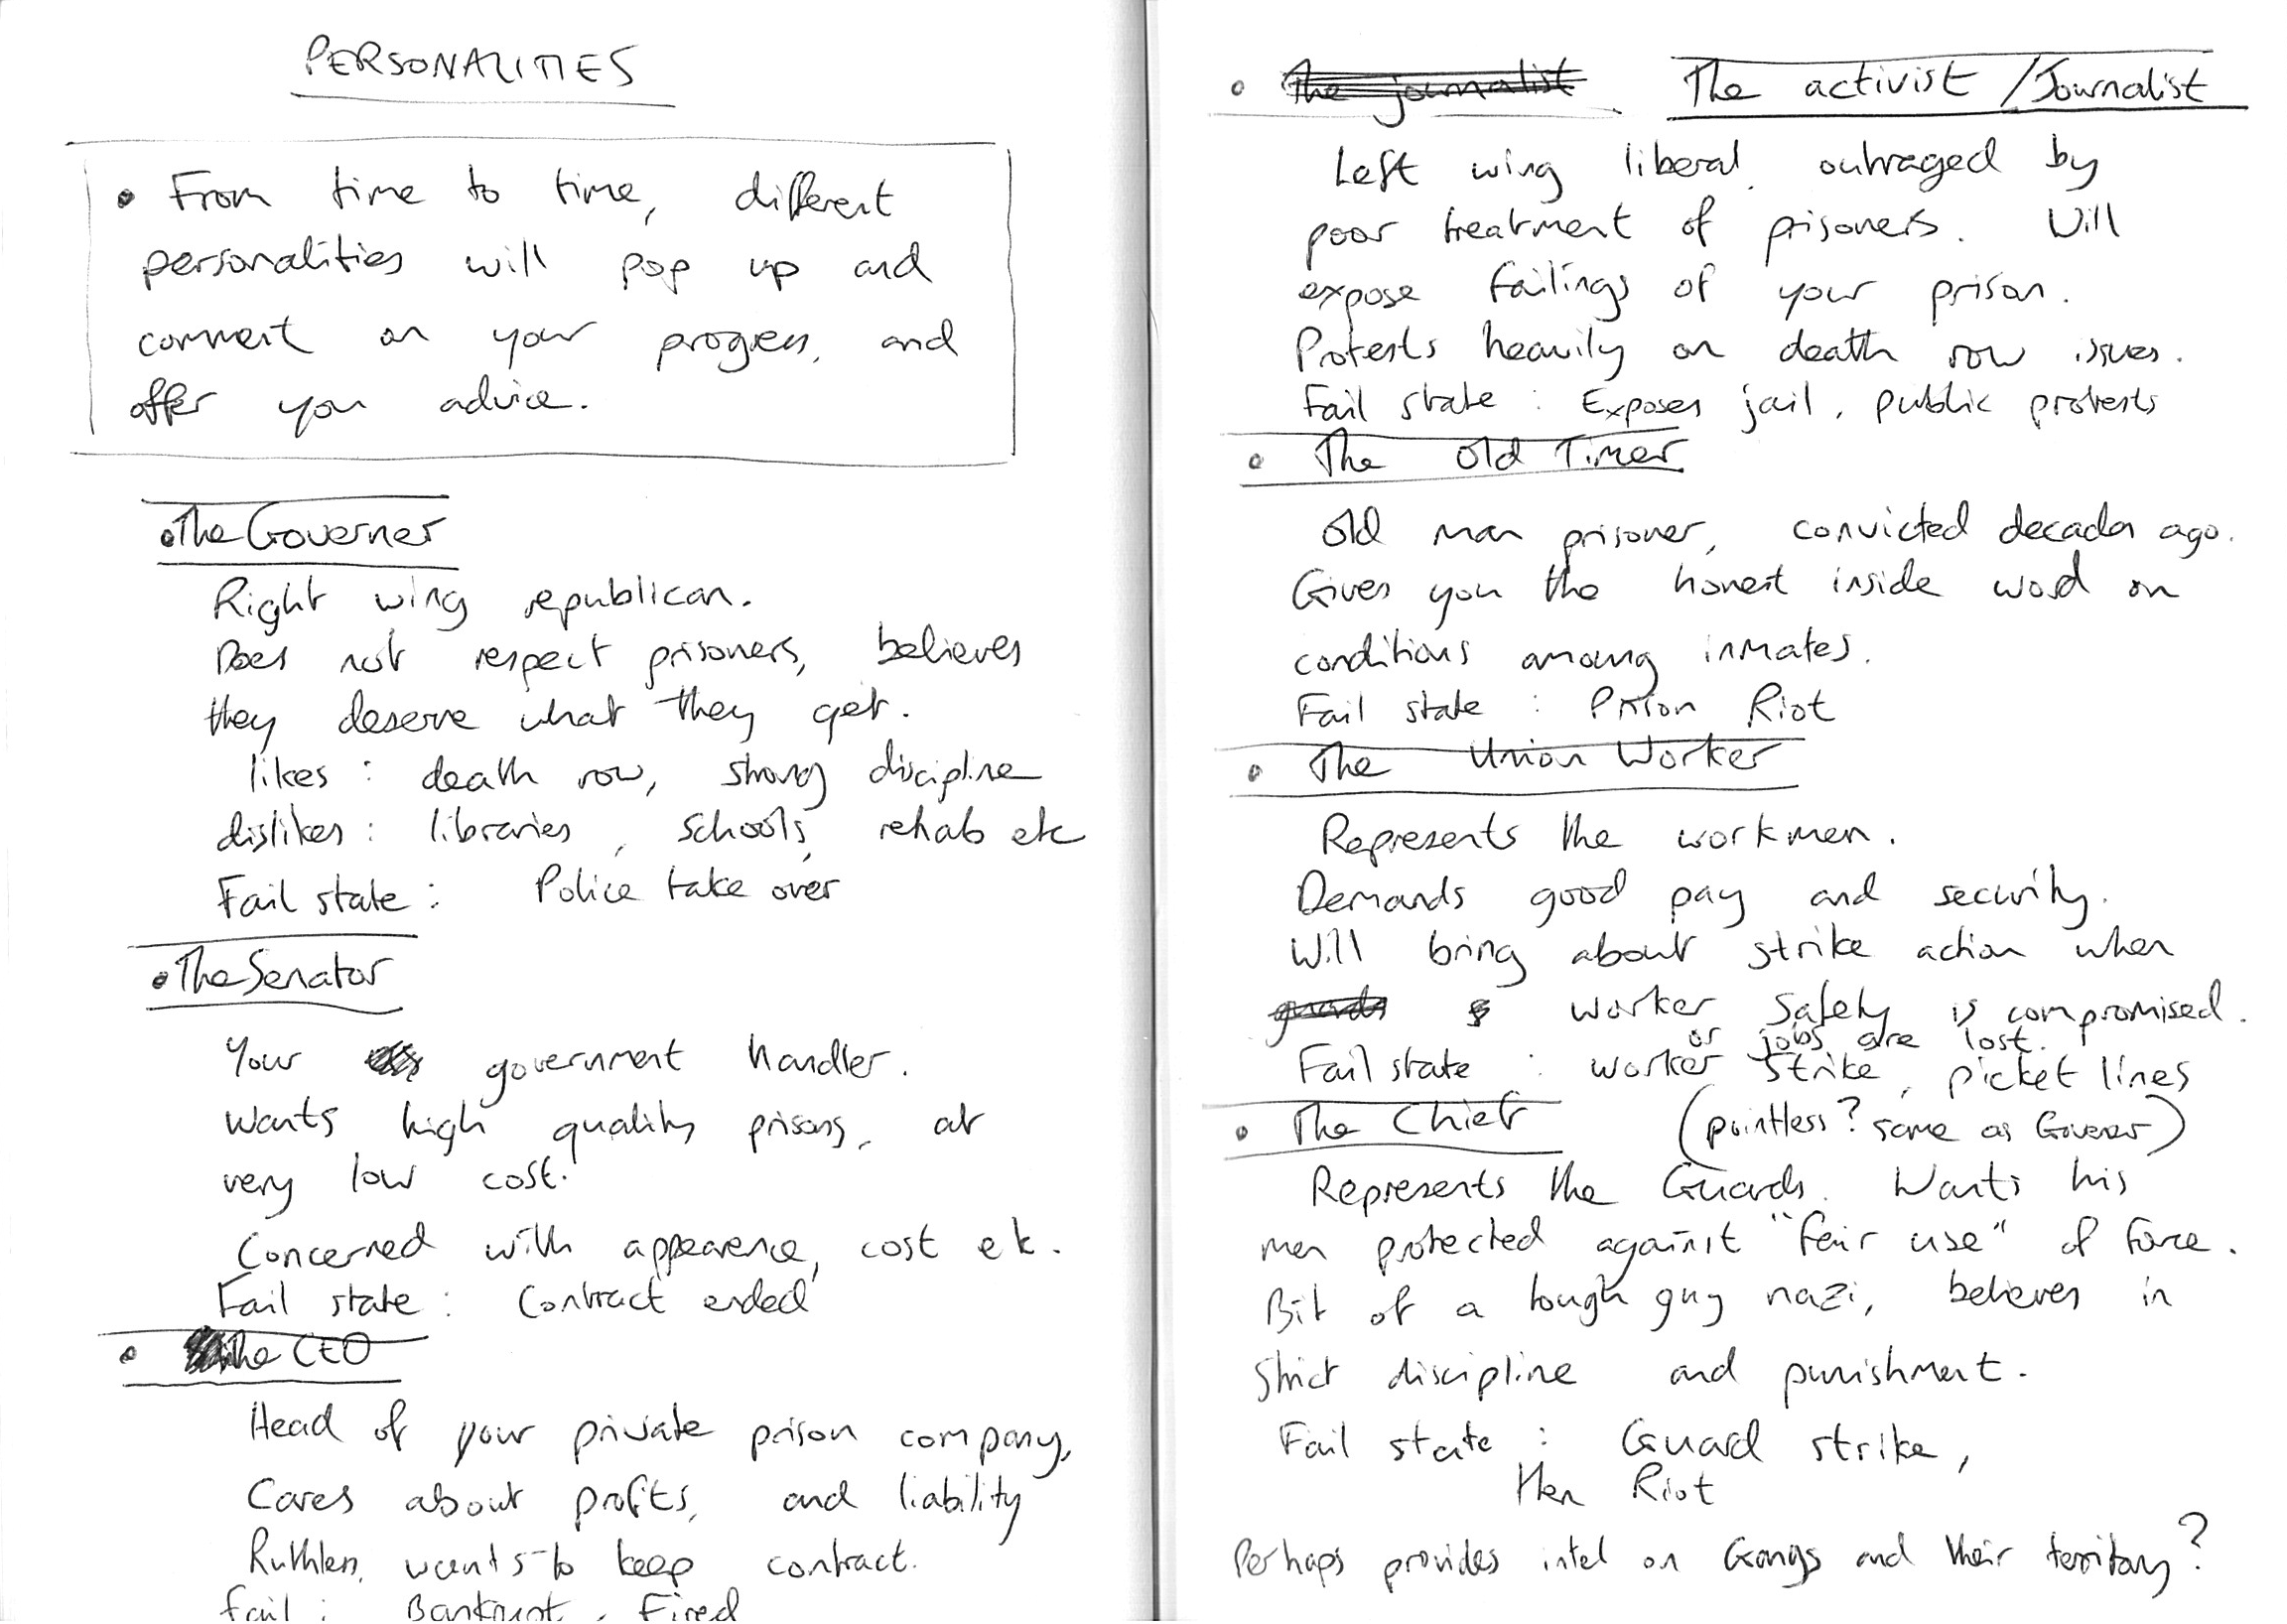 PERSONALITIES
• From time to time, different
personalities will pop up and
comment on your progress, and
offer you advice.
• The Governer
Right wing republican.
Does not respect prisoners, believes
they deserve what they get.
likes : death row, strong discipline
dislikes : libraries, schools, rehab etc
Fail state : Police take over
• The Senator
Your government handler.
Wants high quality prisons, at
very low cost.
Concerned with appearence, cost etc.
Fail state : Contract ended
• The CEO
Head of your private prison company,
Cares about profits, and liability
Ruthless, wants to keep contract.
Fail : Bankrupt, Fired
• The journalist The activist / Journalist
Left wing liberal, outraged by
poor treatment of prisoners. Will
expose failings of your prison.
Protests heavily on death row issues.
Fail state : Exposes jail, public protests
• The Old Timer
Old man prisoner, convicted decades ago.
Gives you the honest inside word on
conditions among inmates.
Fail state : Prison Riot
• The Union Worker
Represents the workmen.
Demands good pay and security.
Will bring about strike action when
guards worker safety is compromised.
or jobs are lost.
Fail state : worker strike, picket lines
• The Chief (pointless? same as Governer)
Represents the Guards. Wants his
men protected against "fair use" of force.
Bit of a tough guy nazi, believes in
strict discipline and punishment.
Fail state : Guard strike,
then Riot
Perhaps provides intel on Gangs and their territory?